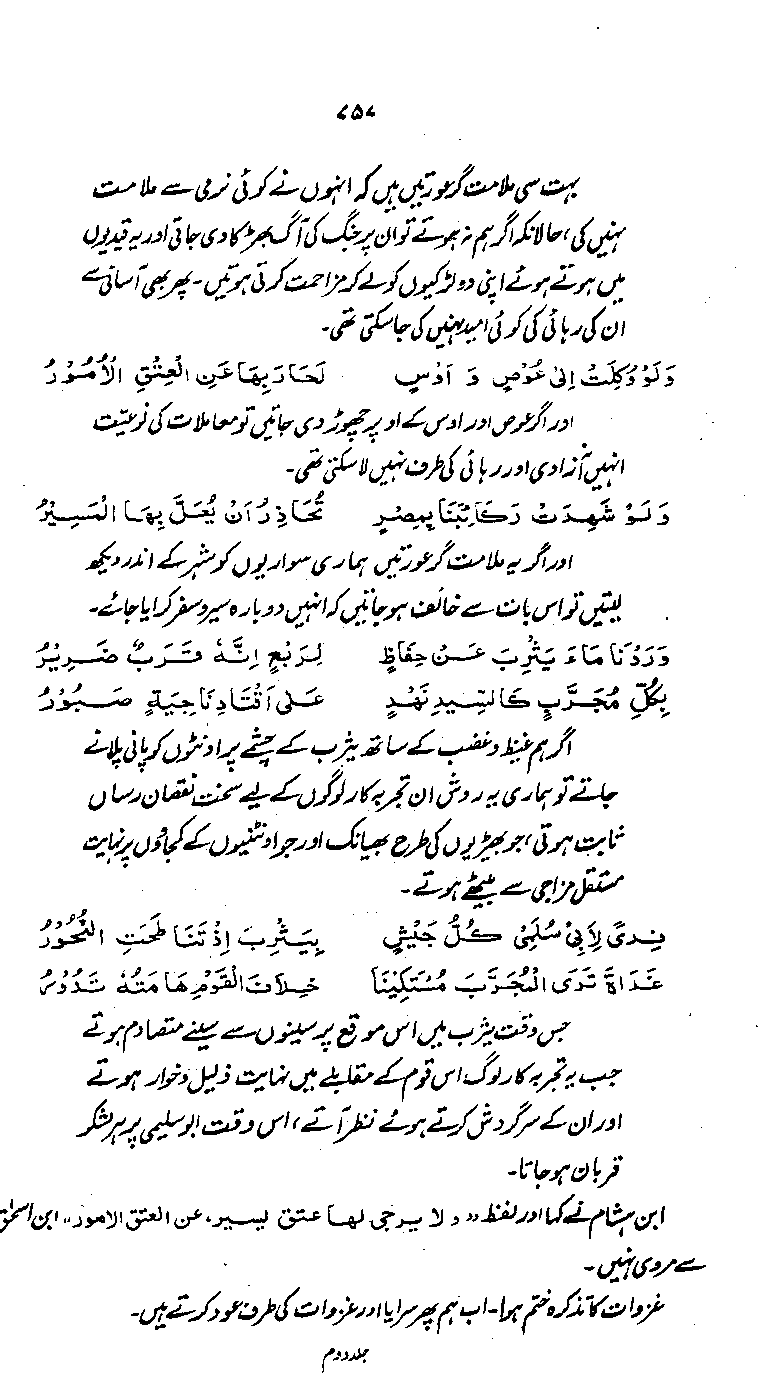 ۷۵۷
بہت سی ملامت گر عورتیں ہیں کہ انہوں نے کوئی نرمی سے ملامت
نہیں کی، حالانکہ اگر ہم نہ ہوتے تو ان پر جنگ کی آگ بھڑکا دی جاتی اور یہ قیدیوں
میں ہوتے ہوئے اپنی دو لڑکیوں کو لے کر مزاحمت کرتی ہوتیں۔ پھر بھی آسانی سے
ان کی رہائی کی کوئی امید نہیں کی جا سکتی تھی۔
وَلَوْ وُكِلَتْ اِلیٰ عَوْصٍ وَ اَوْسٍ لَحَادَ بِهَا عَنِ الْعِتْقِ الْاُمُوْرُ
اور اگر عوص اور اوس کے اوپر چھوڑ دی جاتیں تو معاملات کی نوعیت
انہیں آزادی اور رہائی کی طرف نہیں لا سکتی تھی۔
وَلَوْ شَهِدَتْ رَكَائِبَنَا بِمِصْرٍ تُحَاذِرُ اَنْ يُعَلَّ بِهَا الْمَسِيْرُ
اور اگر یہ ملامت گر عورتیں ہماری سواریوں کو شہر کے اندر دیکھ
لیتیں تو اس بات سے خائف ہو جاتیں کہ انہیں دوبارہ سیر و سفر کرایا جائے۔
وَرَدْنَا مَاءَ يَثْرِبَ عَنْ حِفَاظٍ لِرَبْعٍ اِنَّهٗ قَرَبٌ ضَرِيْرُ
بِكُلِّ مُجَرَّبٍ كَالسِّيدِ نَهْدٍ عَلیٰ اَقْتَادِ نَاجِيَةٍ صَبُوْرُ
اگر ہم غیظ و غضب کے ساتھ یثرب کے چشمے پر اونٹوں کو پانی پلانے
جاتے تو ہماری یہ روش ان تجربہ کار لوگوں کے لیے سخت نقصان رساں
ثابت ہوتی، جو بھیڑیوں کی طرح بھیانک اور جو اونٹنیوں کے کجاؤں پر نہایت
مستقل مزاجی سے بیٹھے ہوتے۔
فِدىً لِاَبِیْ سُلْمیٰ كُلُّ جَيْشٍ بِيَثْرِبَ اِذْ تَنَاطَحَتِ النُّحُوْرُ
غَدَاةَ تَرَى الْمُجَرَّبَ مُسْتَكِيْنًا خِلَافَ الْقَوْمِ هَامَتُهٗ تَدُوْرُ
جس وقت یثرب میں اس موقع پر سینوں سے سینے متصادم ہوتے
جب یہ تجربہ کار لوگ اس قوم کے مقابلے میں نہایت ذلیل و خوار ہوتے
اور ان کے سر گردش کرتے ہوئے نظر آتے، اس وقت ابو سلیمی پر ہر لشکر
قربان ہو جاتا۔
ابن ہشام نے کہا اور لفظ "ولا يرجى لها عتق يسير، عن العتق الامور" ابن اسحٰق
سے مروی نہیں۔
غزوات کا تذکرہ ختم ہوا۔ اب ہم پھر سرایا اور غزوات کی طرف عود کرتے ہیں۔
جلد دوم